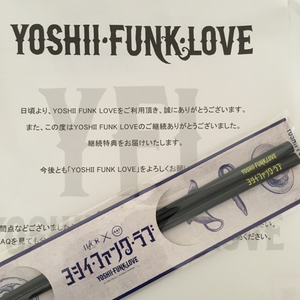 YOSHII・FUNK・LOVE
日頃より、YOSHII FUNK LOVEをご利用頂き、誠にありがとうございます。
また、この度はYOSHII FUNK LOVEのご継続ありがとうございました。
継続特典をお届けいたします。
今後とも「YOSHII FUNK LOVE」をよろしくお願い
YOSHII・FUNK・LOVE
ヨシイ・ファンク・ラブ
ヨシイ・ファンク・ラブ
YOSHII・FUNK・LOVE
間点などございました
AQを見ても
ください。